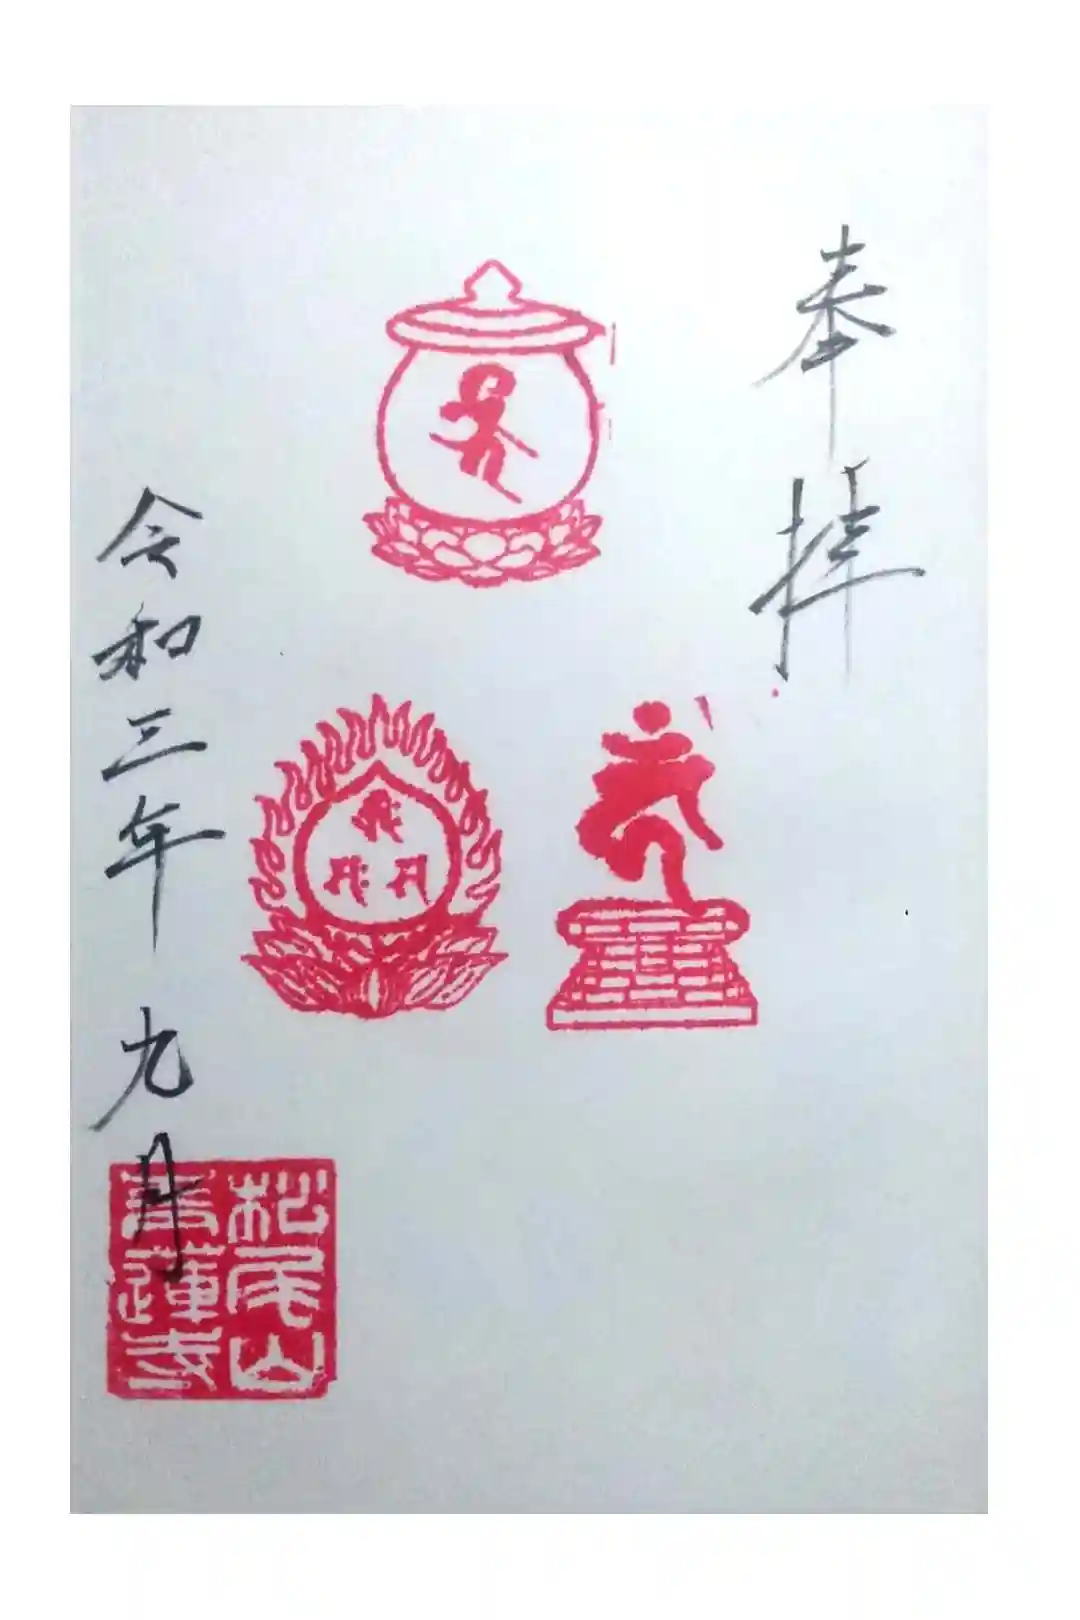 奉拝
令和三年 九月
松尾山
蓮寺